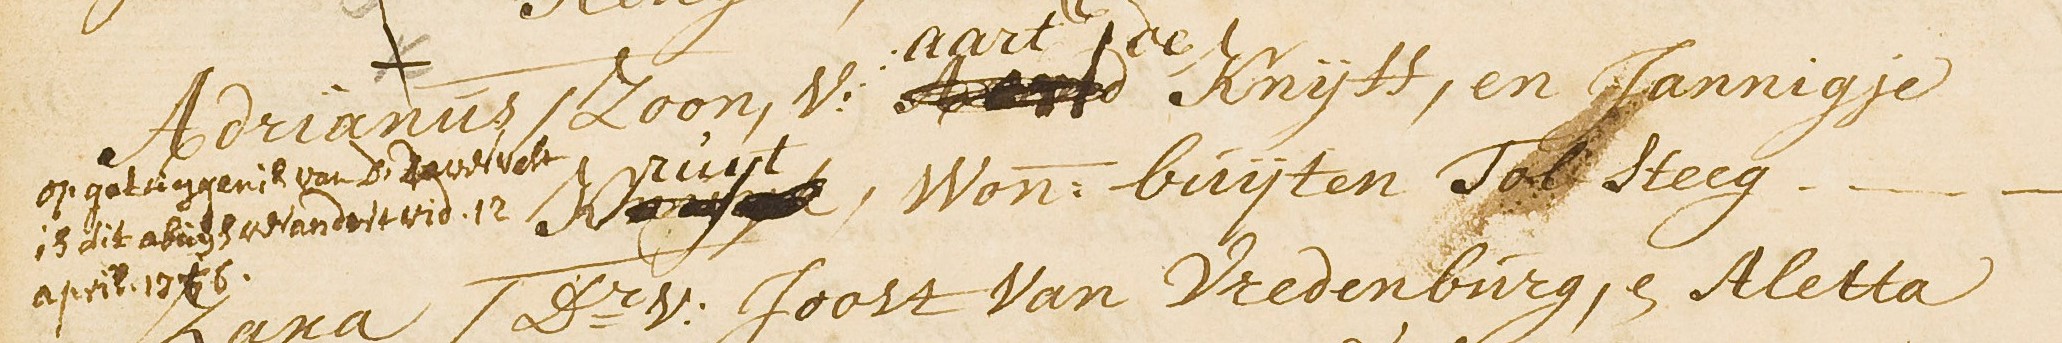 aart de
Adrianus, Zoon, V: Knijff, en Jannigje
ruijt
K, Won: buijten Tol Steeg
op getuygenis van D.
is dit abuys verandert vid. 12
april. 1756.
Zara / Dr. v: Joost Van Vredenburg, e Aletta